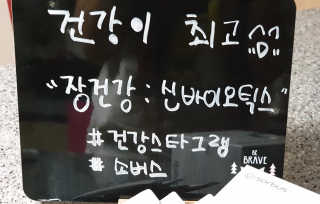 건강이 최고 ^^
"장건강 : 신바이오틱스"
#건강스타그램
#쇼버스
BE
BRAVE